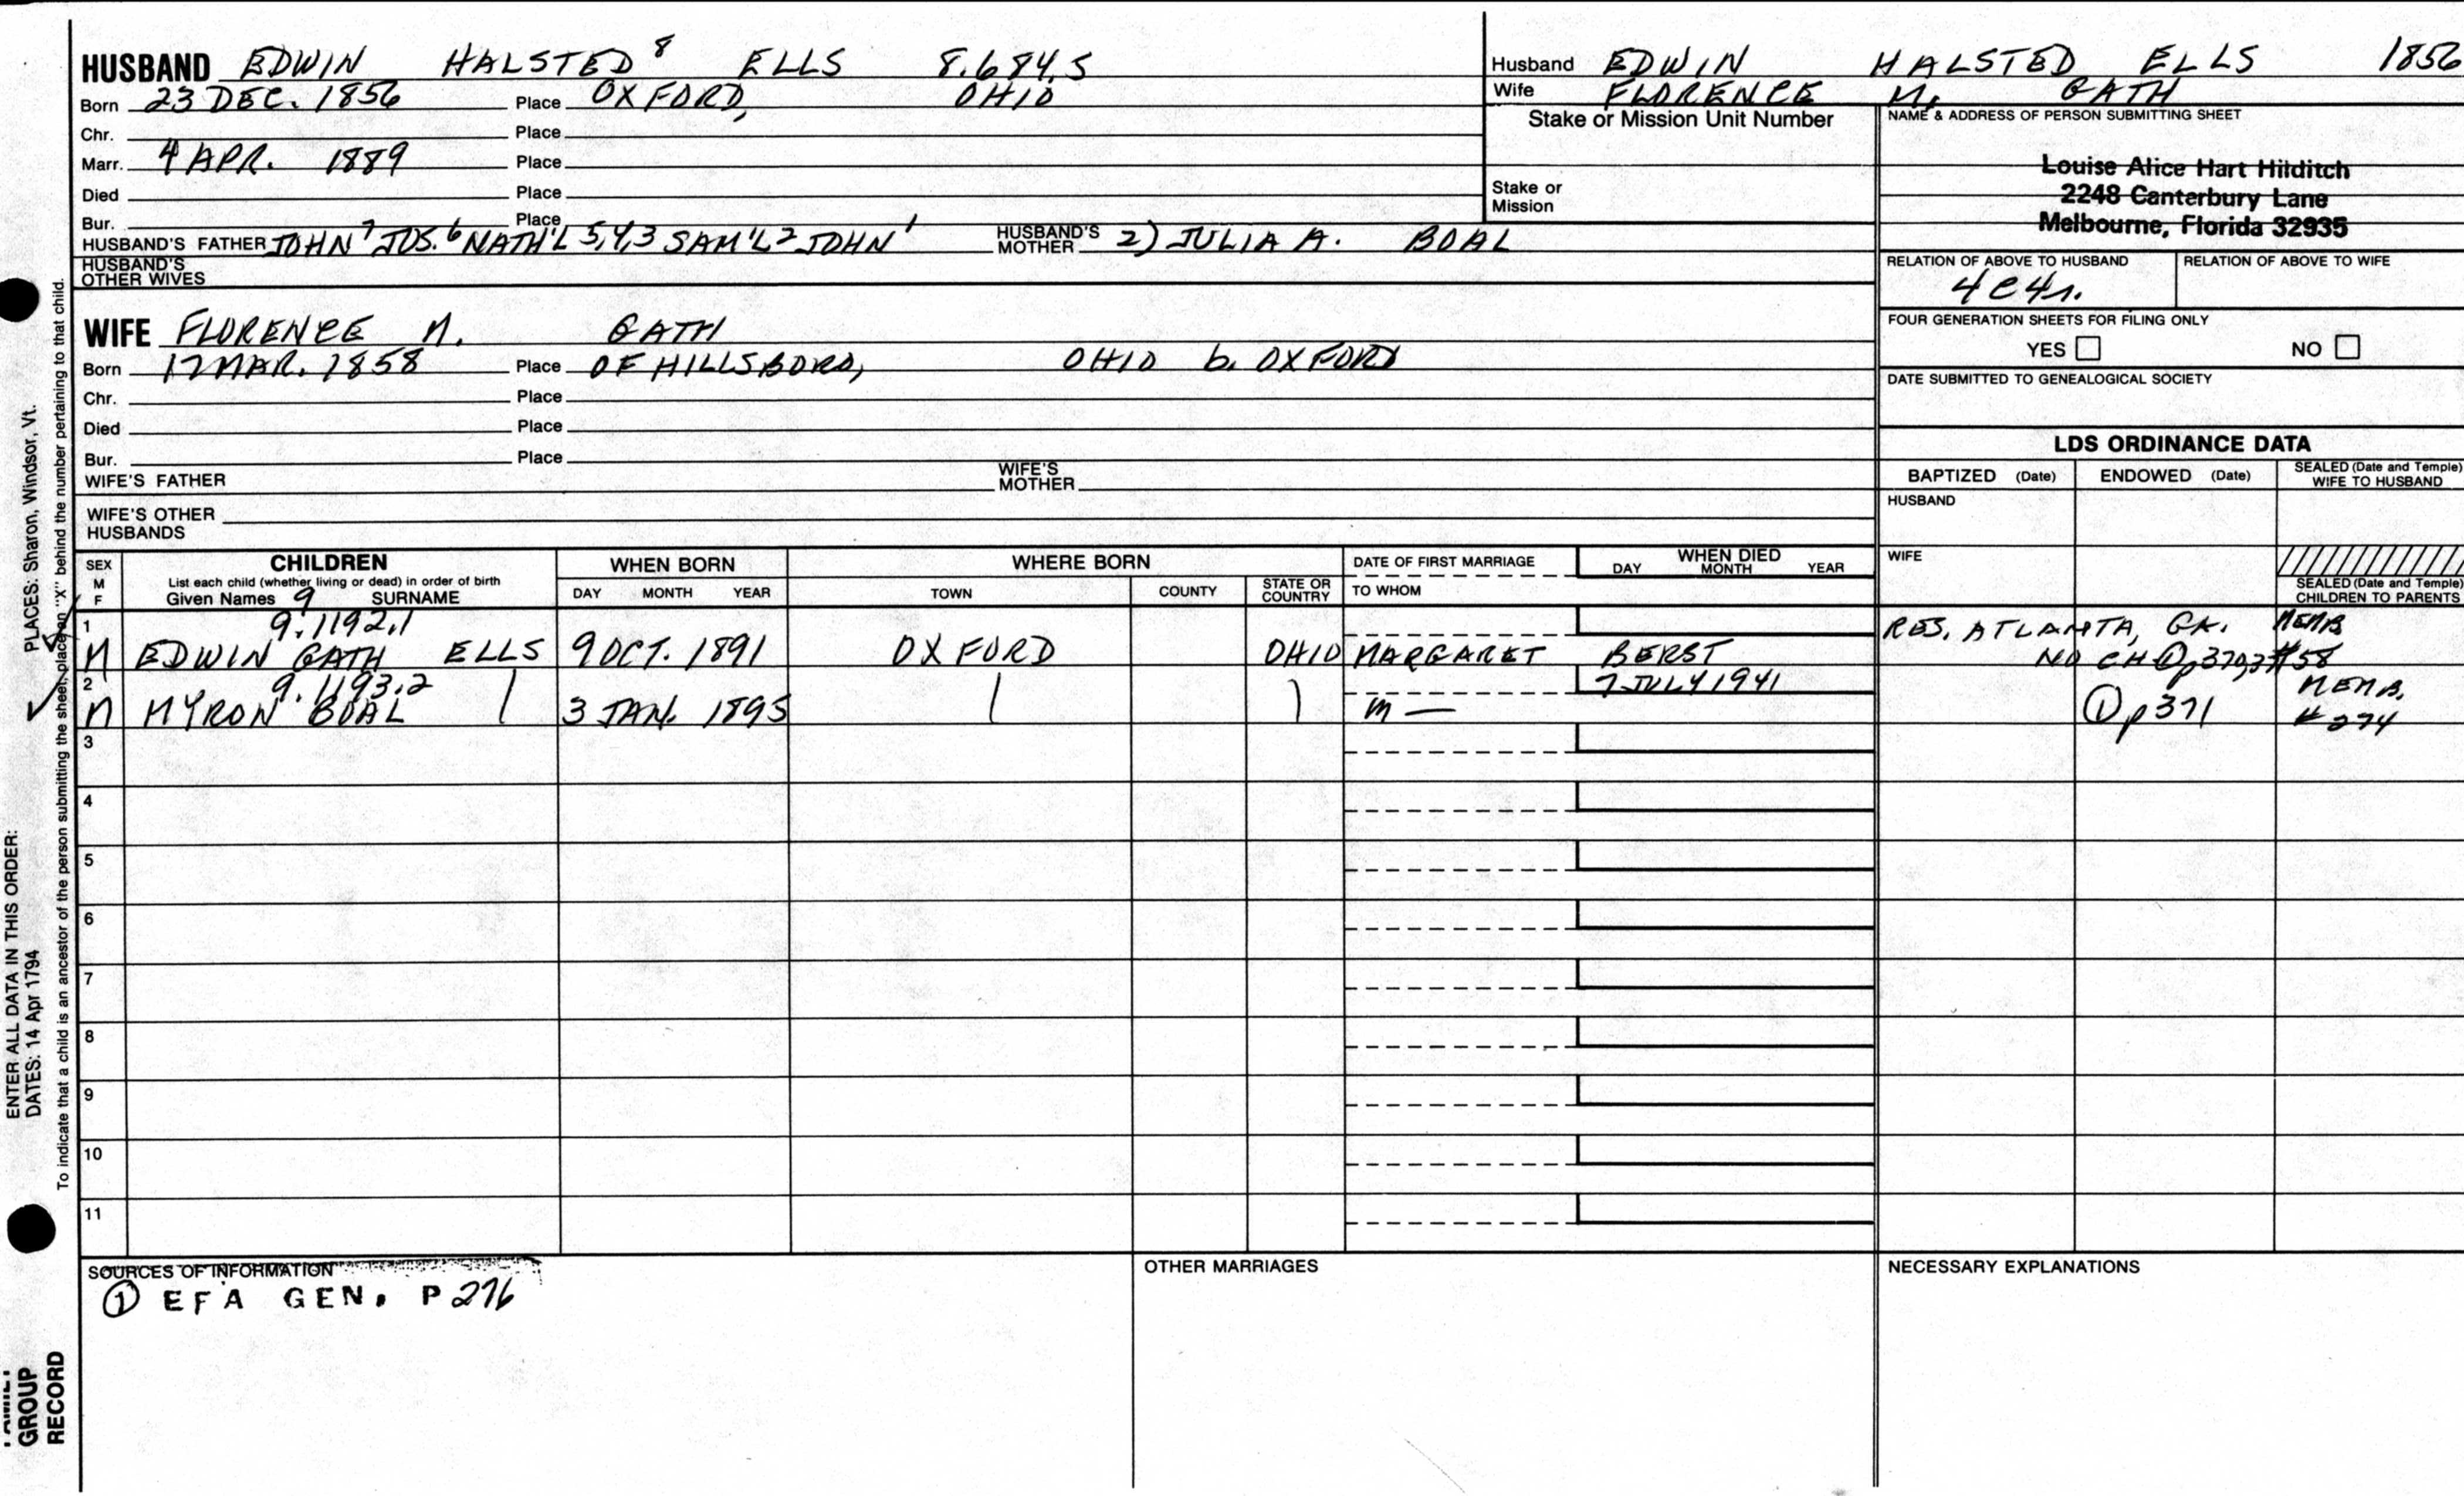 HUSBAND EDWIN HALSTED 8 ELLS 8.684.5
Born 23 DEC. 1856 Place OXFORD, OHIO
Chr. Place
Marr. 4 APR. 1889 Place
Died Place
Bur. Place
HUSBAND'S FATHER JOHN 7 JOS. 6 NATH'L 5,4,3 SAM'L 2 JOHN 1 HUSBAND'S MOTHER 2) JULIA A. BOAL
HUSBAND'S OTHER WIVES
WIFE FLORENCE M. GATH
Born 17 MAR. 1858 Place OF HILLSBORO, OHIO b. OXFORD
Chr. Place
Died Place
Bur. Place
WIFE'S FATHER WIFE'S MOTHER
WIFE'S OTHER HUSBANDS
Husband EDWIN HALSTED ELLS 1856
Wife FLORENCE M. GATH
Stake or Mission Unit Number
Stake or Mission
NAME & ADDRESS OF PERSON SUBMITTING SHEET
Louise Alice Hart Hilditch
2248 Canterbury Lane
Melbourne, Florida 32935
RELATION OF ABOVE TO HUSBAND RELATION OF ABOVE TO WIFE
4c4r.
FOUR GENERATION SHEETS FOR FILING ONLY
YES NO
DATE SUBMITTED TO GENEALOGICAL SOCIETY
LDS ORDINANCE DATA
BAPTIZED (Date) ENDOWED (Date) SEALED (Date and Temple) WIFE TO HUSBAND
HUSBAND
WIFE
SEALED (Date and Temple) CHILDREN TO PARENTS
SEX M F CHILDREN WHEN BORN WHERE BORN DATE OF FIRST MARRIAGE WHEN DIED
List each child (whether living or dead) in order of birth
Given Names 9 SURNAME DAY MONTH YEAR TOWN COUNTY STATE OR COUNTRY TO WHOM DAY MONTH YEAR
1 9.1192.1 RES. ATLANTA, GA. MEMB
M EDWIN GATH ELLS 9 OCT. 1891 OXFORD OHIO MARGARET BERST NO CH ① #58
2 9.1193.2 7 JULY 1941 MEMB.
M MYRON BOAL 3 JAN. 1895 m — ① p 371 # 274
3
4
5
6
7
8
9
10
11
SOURCES OF INFORMATION OTHER MARRIAGES NECESSARY EXPLANATIONS
① EFA GEN. P 276
ENTER ALL DATA IN THIS ORDER:
DATES: 14 Apr 1794 PLACES: Sharon, Windsor, Vt.
To indicate that a child is an ancestor of the person submitting the sheet, place an "X" behind the number pertaining to that child.
FAMILY
GROUP
RECORD